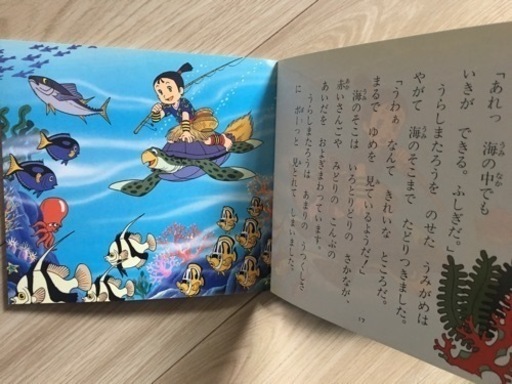 「あれっ 海の中でも
いきが できる。ふしぎだ。」
うらしまたろうを のせた うみがめは
やがて 海のそこまで たどりつきました。
「うわぁ なんて きれいな ところだ。
まるで ゆめを 見ているようだなぁ」
海のそこは いろとりどりの さかなが、
赤いさんごや みどりの こんぶの
あいだを およぎまわっています。
うらしまたろうは あまりの うつくしさ
に ボーっと 見とれて しまいました。
17